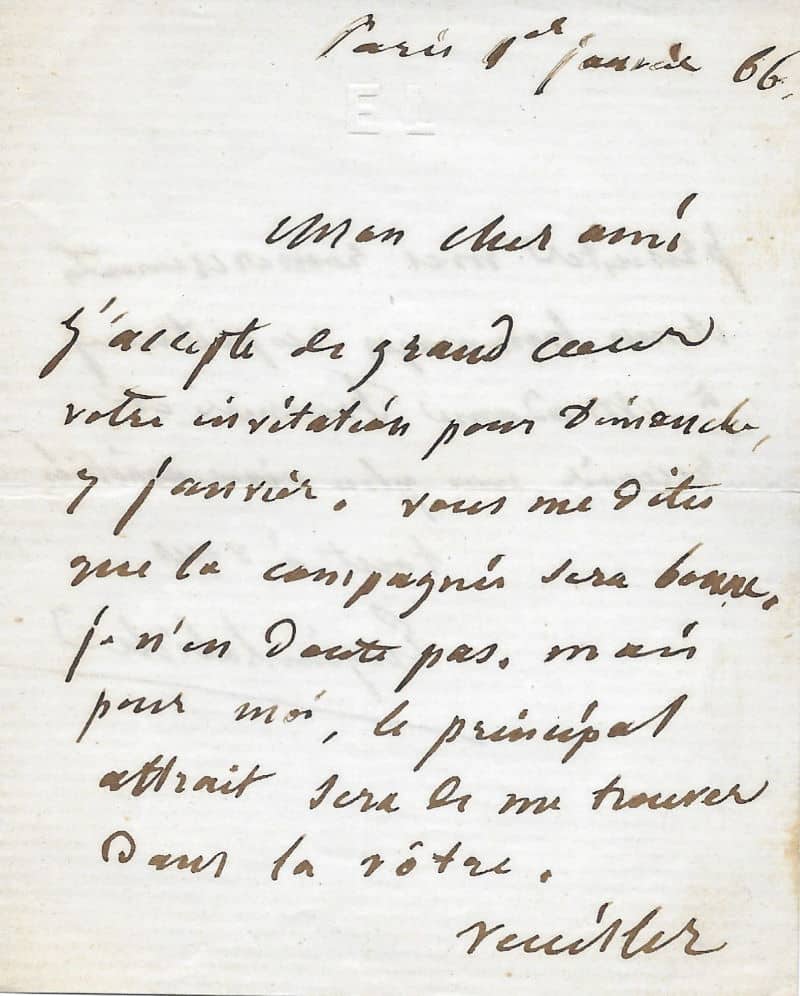 Paris 1er janvier 66.
EL
Mon cher ami
J'accepte de grand coeur
votre invitation pour Dimanche,
7 janvier. vous me dites
que la compagnie sera bonne.
je n'en Doute pas. mais
pour moi, le principal
attrait sera de me trouver
Dans la vôtre.
veuillez